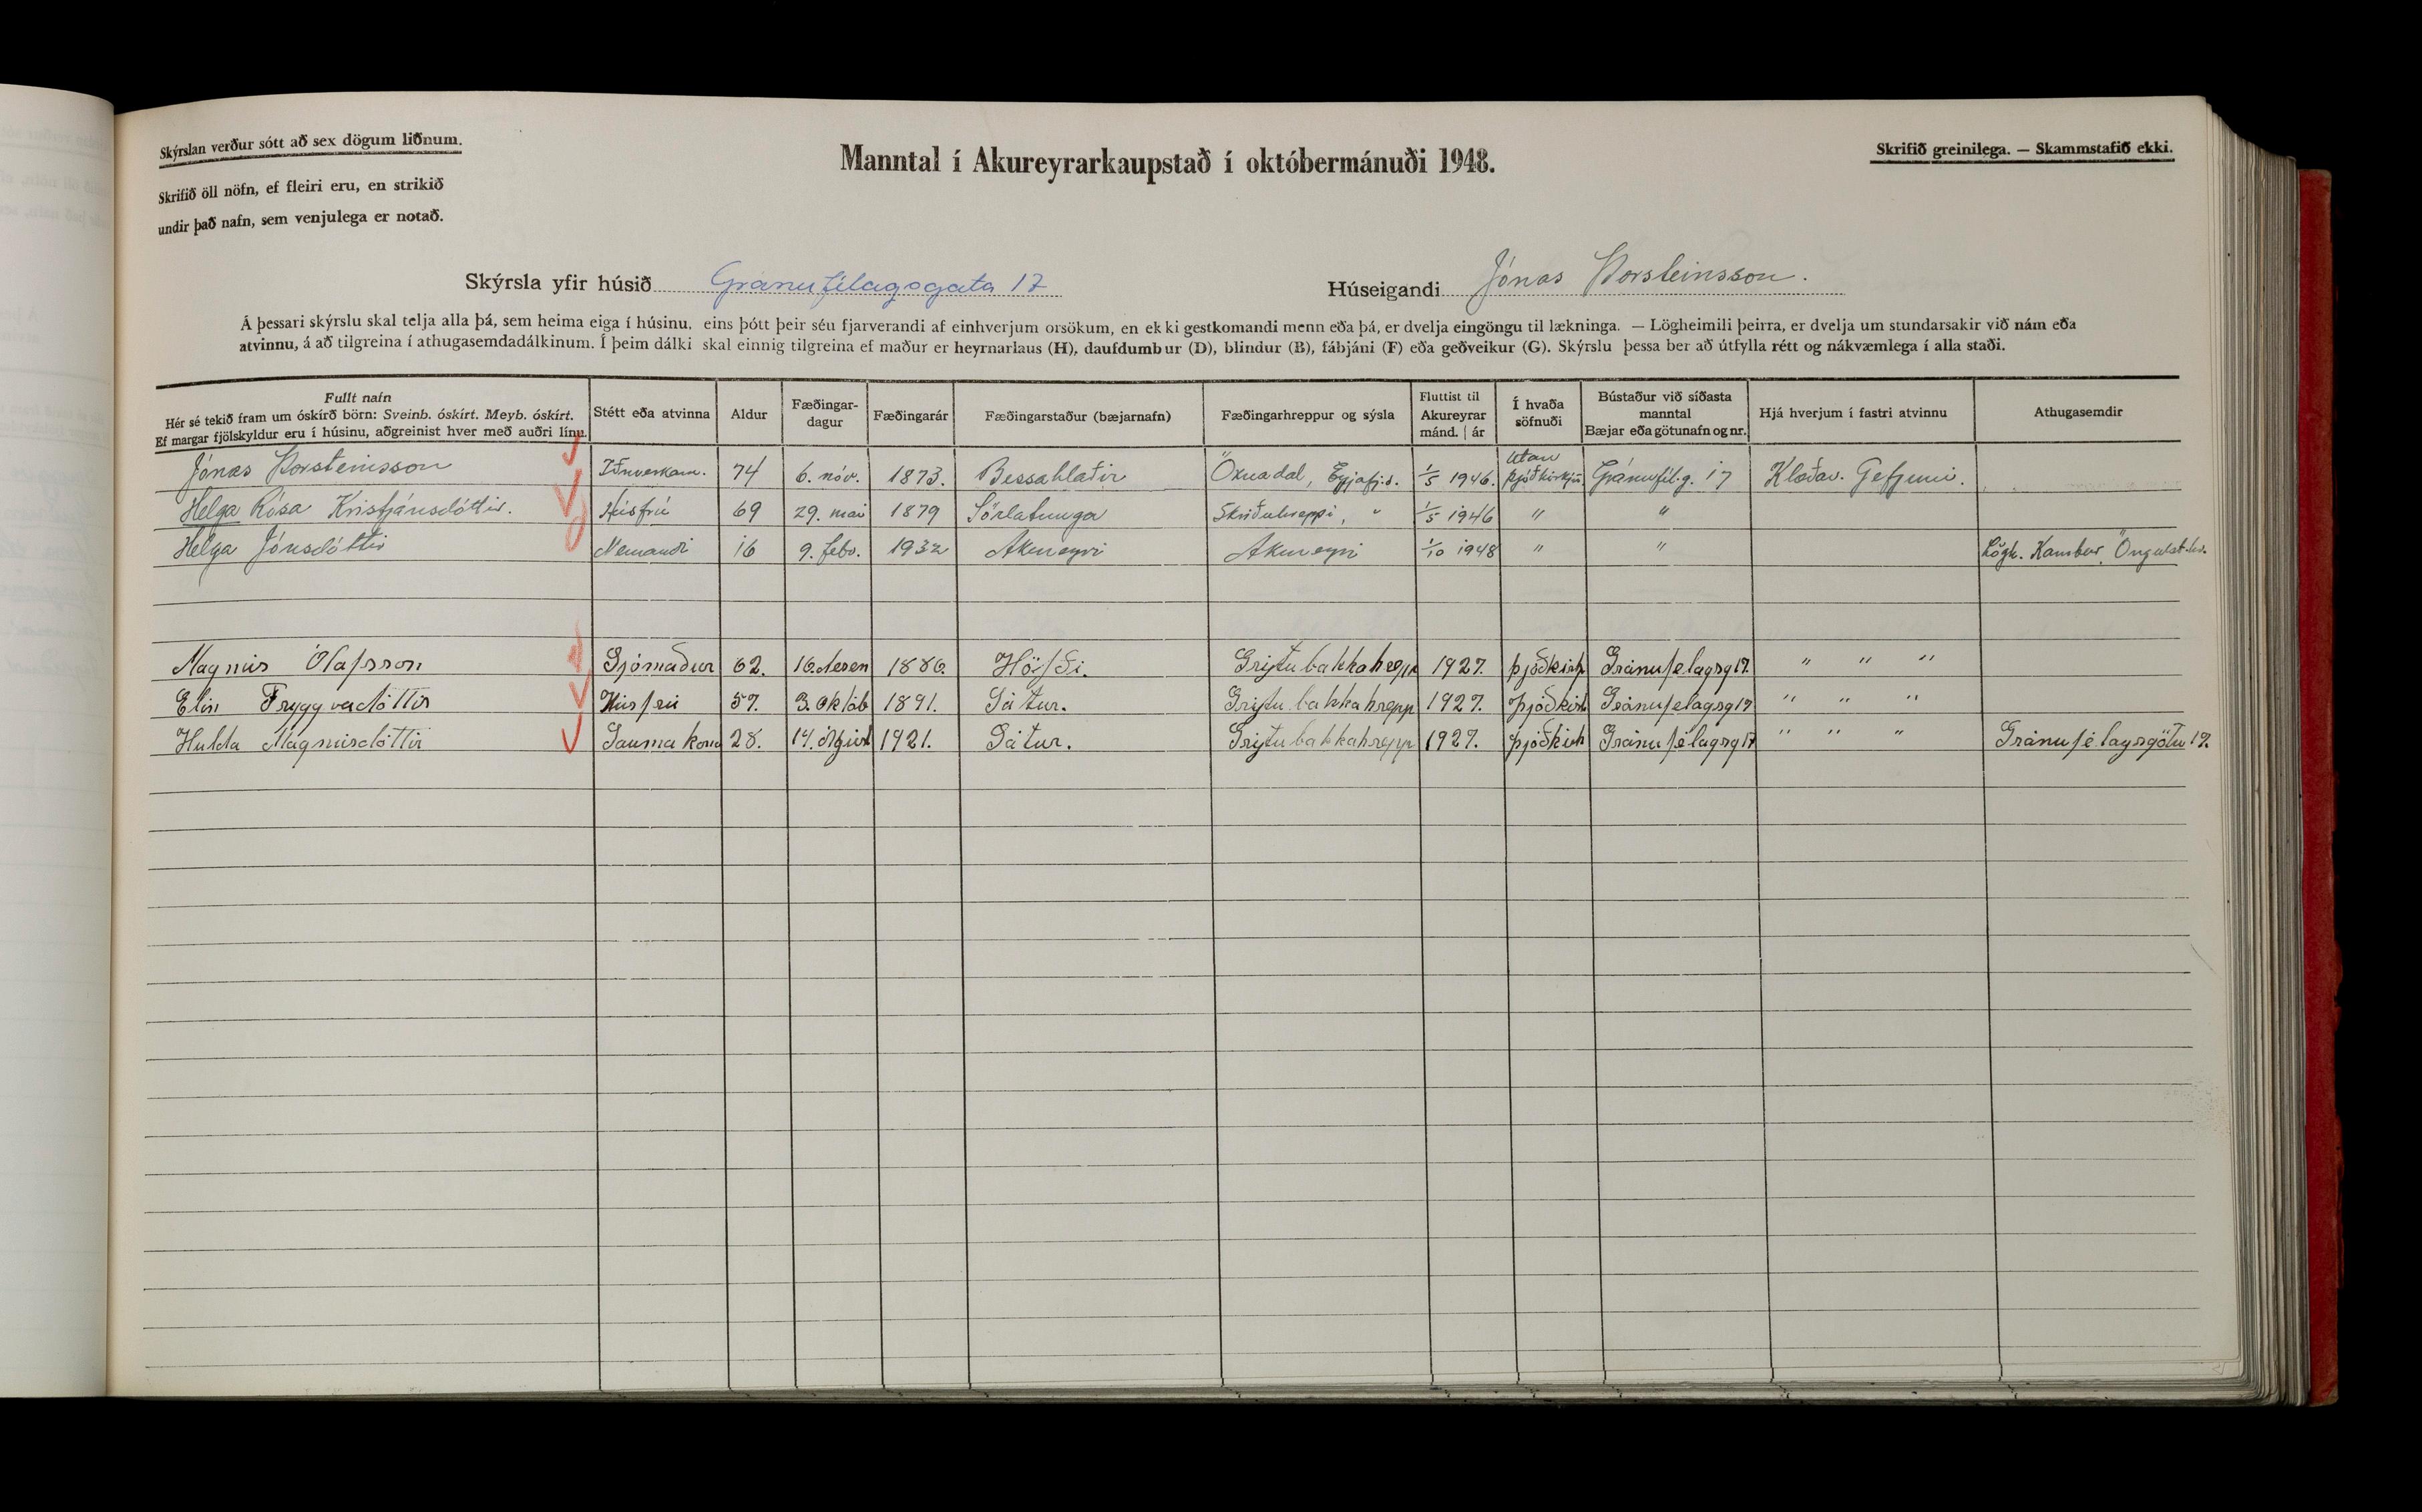 Skýrslan verður sótt að sex dögum liðnum.
Skrifið öll nöfn, ef fleiri eru, en strikið
undir það nafn, sem venjulega er notað.
Manntal í Akureyrarkaupstað í októbermánuði 1948.
Skrifið greinilega. — Skammstafið ekki.
Skýrsla yfir húsið Gránufélagsgata 17
Húseigandi Jónas Þorsteinsson.
Á þessari skýrslu skal telja alla þá, sem heima eiga í húsinu, eins þótt þeir séu fjarverandi af einhverjum orsökum, en ekki gestkomandi menn eða þá, er dvelja eingöngu til lækninga. — Lögheimili þeirra, er dvelja um stundarsakir við nám eða
atvinnu, á að tilgreina í athugasemdadálkinum. Í þeim dálki skal einnig tilgreina ef maður er heyrnarlaus (H), daufdumbur (D), blindur (B), fábjáni (F) eða geðveikur (G). Skýrslu þessa ber að útfylla rétt og nákvæmlega í alla staði.
Fullt nafn
Hér sé tekið fram um óskírð börn: Sveinb. óskírt. Meyb. óskírt.
Ef margar fjölskyldur eru í húsinu, aðgreinist hver með auðri línu.
Stétt eða atvinna
Aldur
Fæðingar-
dagur
Fæðingarár
Fæðingarstaður (bæjarnafn)
Fæðingarhreppur og sýsla
Fluttist til
Akureyrar
mánd. | ár
Í hvaða
söfnuði
Bústaður við síðasta
manntal
Bæjar eða götunafn og nr.
Hjá hverjum í fastri atvinnu
Athugasemdir
Jónas Þorsteinsson Iðnverkam. 74 6. nóv. 1873. Bessahlaðir Öxnadal, Eyjafj.s. 1/5 1946. Utan þjóðkirkju Gránufél.g. 17 Klæðav. Gefjuni.
Helga Rósa Kristjánsdóttir. Húsfrú 69 29. mai 1879 Sörlatunga Skriðuhreppi, " 1/5 1946 " "
Helga Jónsdóttir Nemandi 16 9. febr. 1932 Akureyri Akureyri 1/10 1948 " " Lögh. Kambur, Öngulst.hr.
Magnús Ólafsson Sjómaður 62. 16. desem 1886. Höfði. Grýtubakkahrepp 1927. þjóðkirk Gránufélagsg 17. " " "
Elín Tryggvadóttir Húsfrú 57. 3. októb 1891. Látur. Grýtubakkahrepp 1927. þjóðkirk Gránufelagsg 17 " " "
Hulda Magnúsdóttir Saumakona 28. 14. ágúst 1921. Látur. Grýtubakkahrepp 1927. þjóðkirk Gránufélagsg 17 " " " Gránufélagsgötu 17.